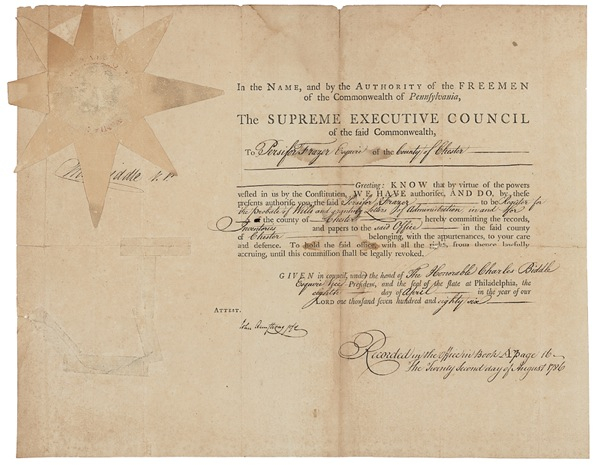 In the NAME, and by the AUTHORITY of the FREEMEN
of the Commonwealth of Pennsylvania,
The SUPREME EXECUTIVE COUNCIL
of the said Commonwealth,
To Persifor Frazer Esquire of the County of Chester
Greeting: KNOW that by virtue of the powers
vested in us by the Constitution, WE HAVE authorised, AND DO by these
presents authorise you, the said Persifor Frazer to be Register for
the Probate of Wills and granting Letters of Administration in and for
the county of Chester hereby committing the records,
Inventories and papers to the said Office in the said county
of Chester belonging, with the appurtenances, to your care
and defence. To hold the said office, with all the from thence lawfully
accruing, until this commission shall be legally revoked.
GIVEN in council, under the hand of The Honorable Charles Biddle
Esquire Vice President, and the seal of the state at Philadelphia, the
eighth day of April in the year of our
LORD one thousand seven hundred and eighty six
Biddle V. P.
ATTEST.
John Armstrong
Recorded in the Office in Book page 16
The Twenty Second day of August 1786